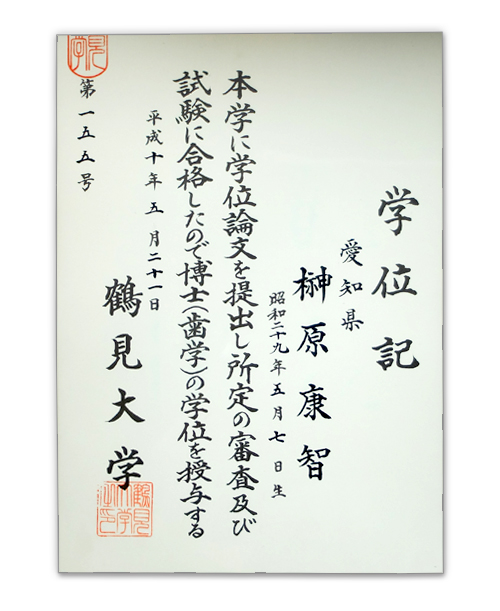 学位記
愛知県
榊原康智
昭和二十九年五月七日生
本学に学位論文を提出し所定の審査及び
試験に合格したので博士(歯学)の学位を授与する
平成十年五月二十一日
鶴見大学
第一五五号